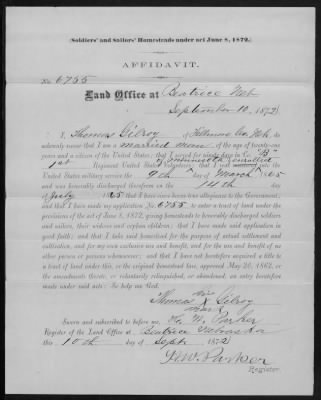 (Soldiers' and Sailors' Homesteads under act June 8, 1872.)
AFFIDAVIT.
No. 6755
Land Office at Beatrice Neb
September 10, 1872
I, Thomas Gilroy of Neb. do
solemnly swear that I am a married man, of the age of twenty-one
years and a citizen of the United States; that I served for ninety days in Co. "B"
1st Regiment United States Volunteers; that I enrolled
United States military service the 9th day of March 1865
and was honorably discharged therefrom on the 14th day
of July 1865 that I have since borne true allegiance to the Government;
and that I have made my application No. 6755 to enter a tract of land under the
provisions of the act of June 8, 1872, giving homesteads to honorably discharged soldiers
and sailors, their widows and orphan children; that I have made said application in
good faith; and that I take said homestead for the purpose of actual settlement and
cultivation, and for my own exclusive use and benefit, and for the use and benefit of no
other person or persons whomsoever; and that I have not heretofore acquired a title to
a tract of land under this, or the original homestead law, approved May 20, 1862, or
the amendments thereto, or voluntarily relinquished, or abandoned, an entry heretofore
made under said acts: So help me God.
his
Thomas X Gilroy
mark
Sworn and subscribed to before me, H. W. Parker
Register of the Land Office at Beatrice Nebraska
this 10th day of Sept. 1872
H. W. Parker
Register.